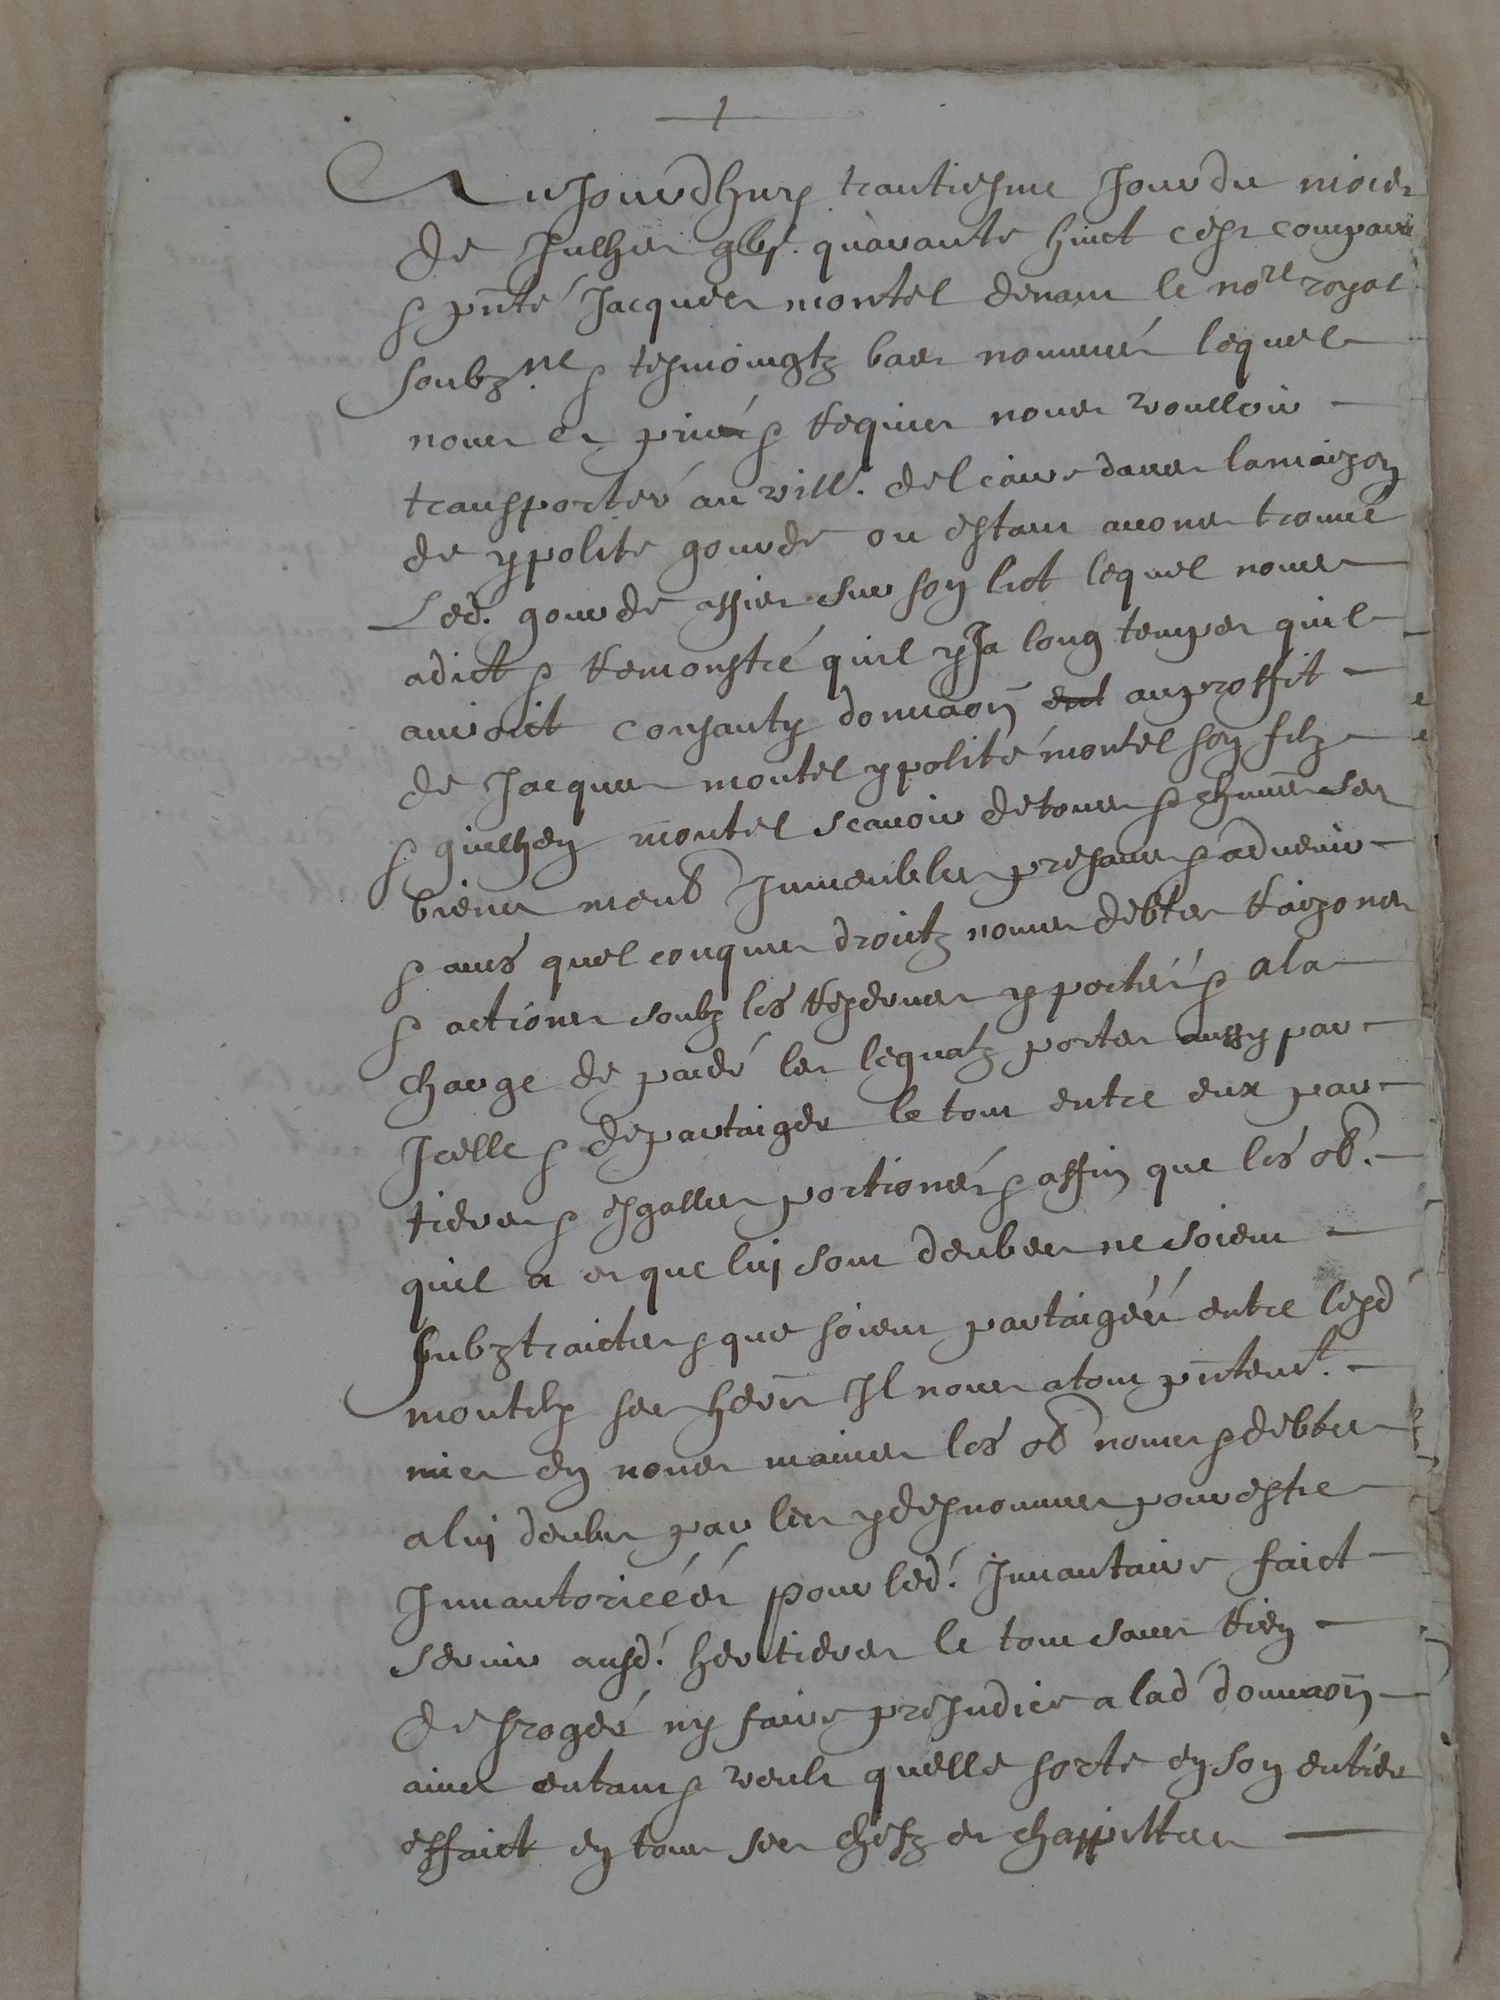 Aujourdhuy trantiesme Jour du mois
de Julhet gbj.^c quarante huict cest comparu
& pnté Jacques montel devant le no^re royal
soubz.^né & tesmoingtz bas nommés lequel
nous a priés & Requis nous voulloir
transporter au vill. del caire dans la maison
de ypolite gourde ou estant avons trouvé
Led. gourde assis sur son lict lequel nous
a dict & Remonstré quil y Ja long temps quil
auroict consanty donnaon au proffit
de Jacques montel ypolite montel son filz
& guilhen montel scavoir de tous & chunes ses
biens meub Immeubles presans & advenir
& aues quelconques droictz noms debtes Raizons
& actions soubz les Reserves y portés & a la
charge de paier les leguatz portes aussy par
Icelle & departaiger le tout entre eux par
tieres & esgalles portiones & affin que les ob.
quil a et que luj sont deubes ne soient
subztraictes & que soient partaigées entre lesd
montelz ses hers Il nous a tout pntem.^t
mis en nous mains les ob noms & debtes
a luj deubes par les y desnommes pour estre
Innantoricées pour led. Innantaire faict
servir ausd. hertieres le tout sans Rien
desroger ny faire preJudice a lad donnaon
ains entant & veult quelle sorte en son entier
effaict en tous ses chefz et chappittres